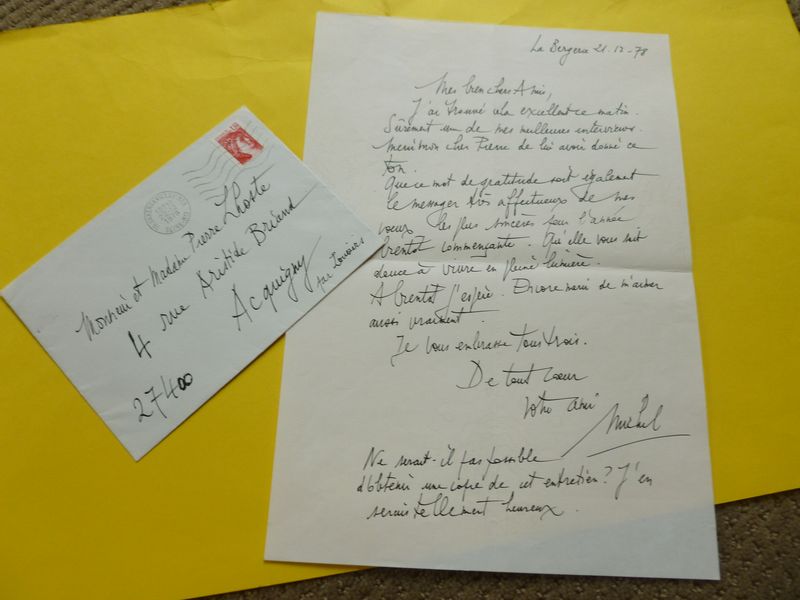 La Bergerie 21.12-78
Mes bien chers Amis,
J'ai trouvé cela excellent ce matin.
Sûrement une de mes meilleures interviews.
Merci mon cher Pierre de lui avoir donné ce
ton.
Que ce mot de gratitude soit également
le messager très affectueux de mes
voeux les plus sincères pour l'année
bientôt commençante. Qu'elle vous soit
douce à vivre en pleine lumière.
A bientôt j'espère. Encore merci de m'aimer
aussi vraiment.
Je vous embrasse tous trois.
De tout coeur
votre ami
Michel
Ne serait-il pas possible
d'obtenir une copie de cet entretien? J'en
serais tellement heureux.
Monsieur et Madame Pierre Lhoste
4 rue Aristide Briand
Acquigny
par Louviers
27400